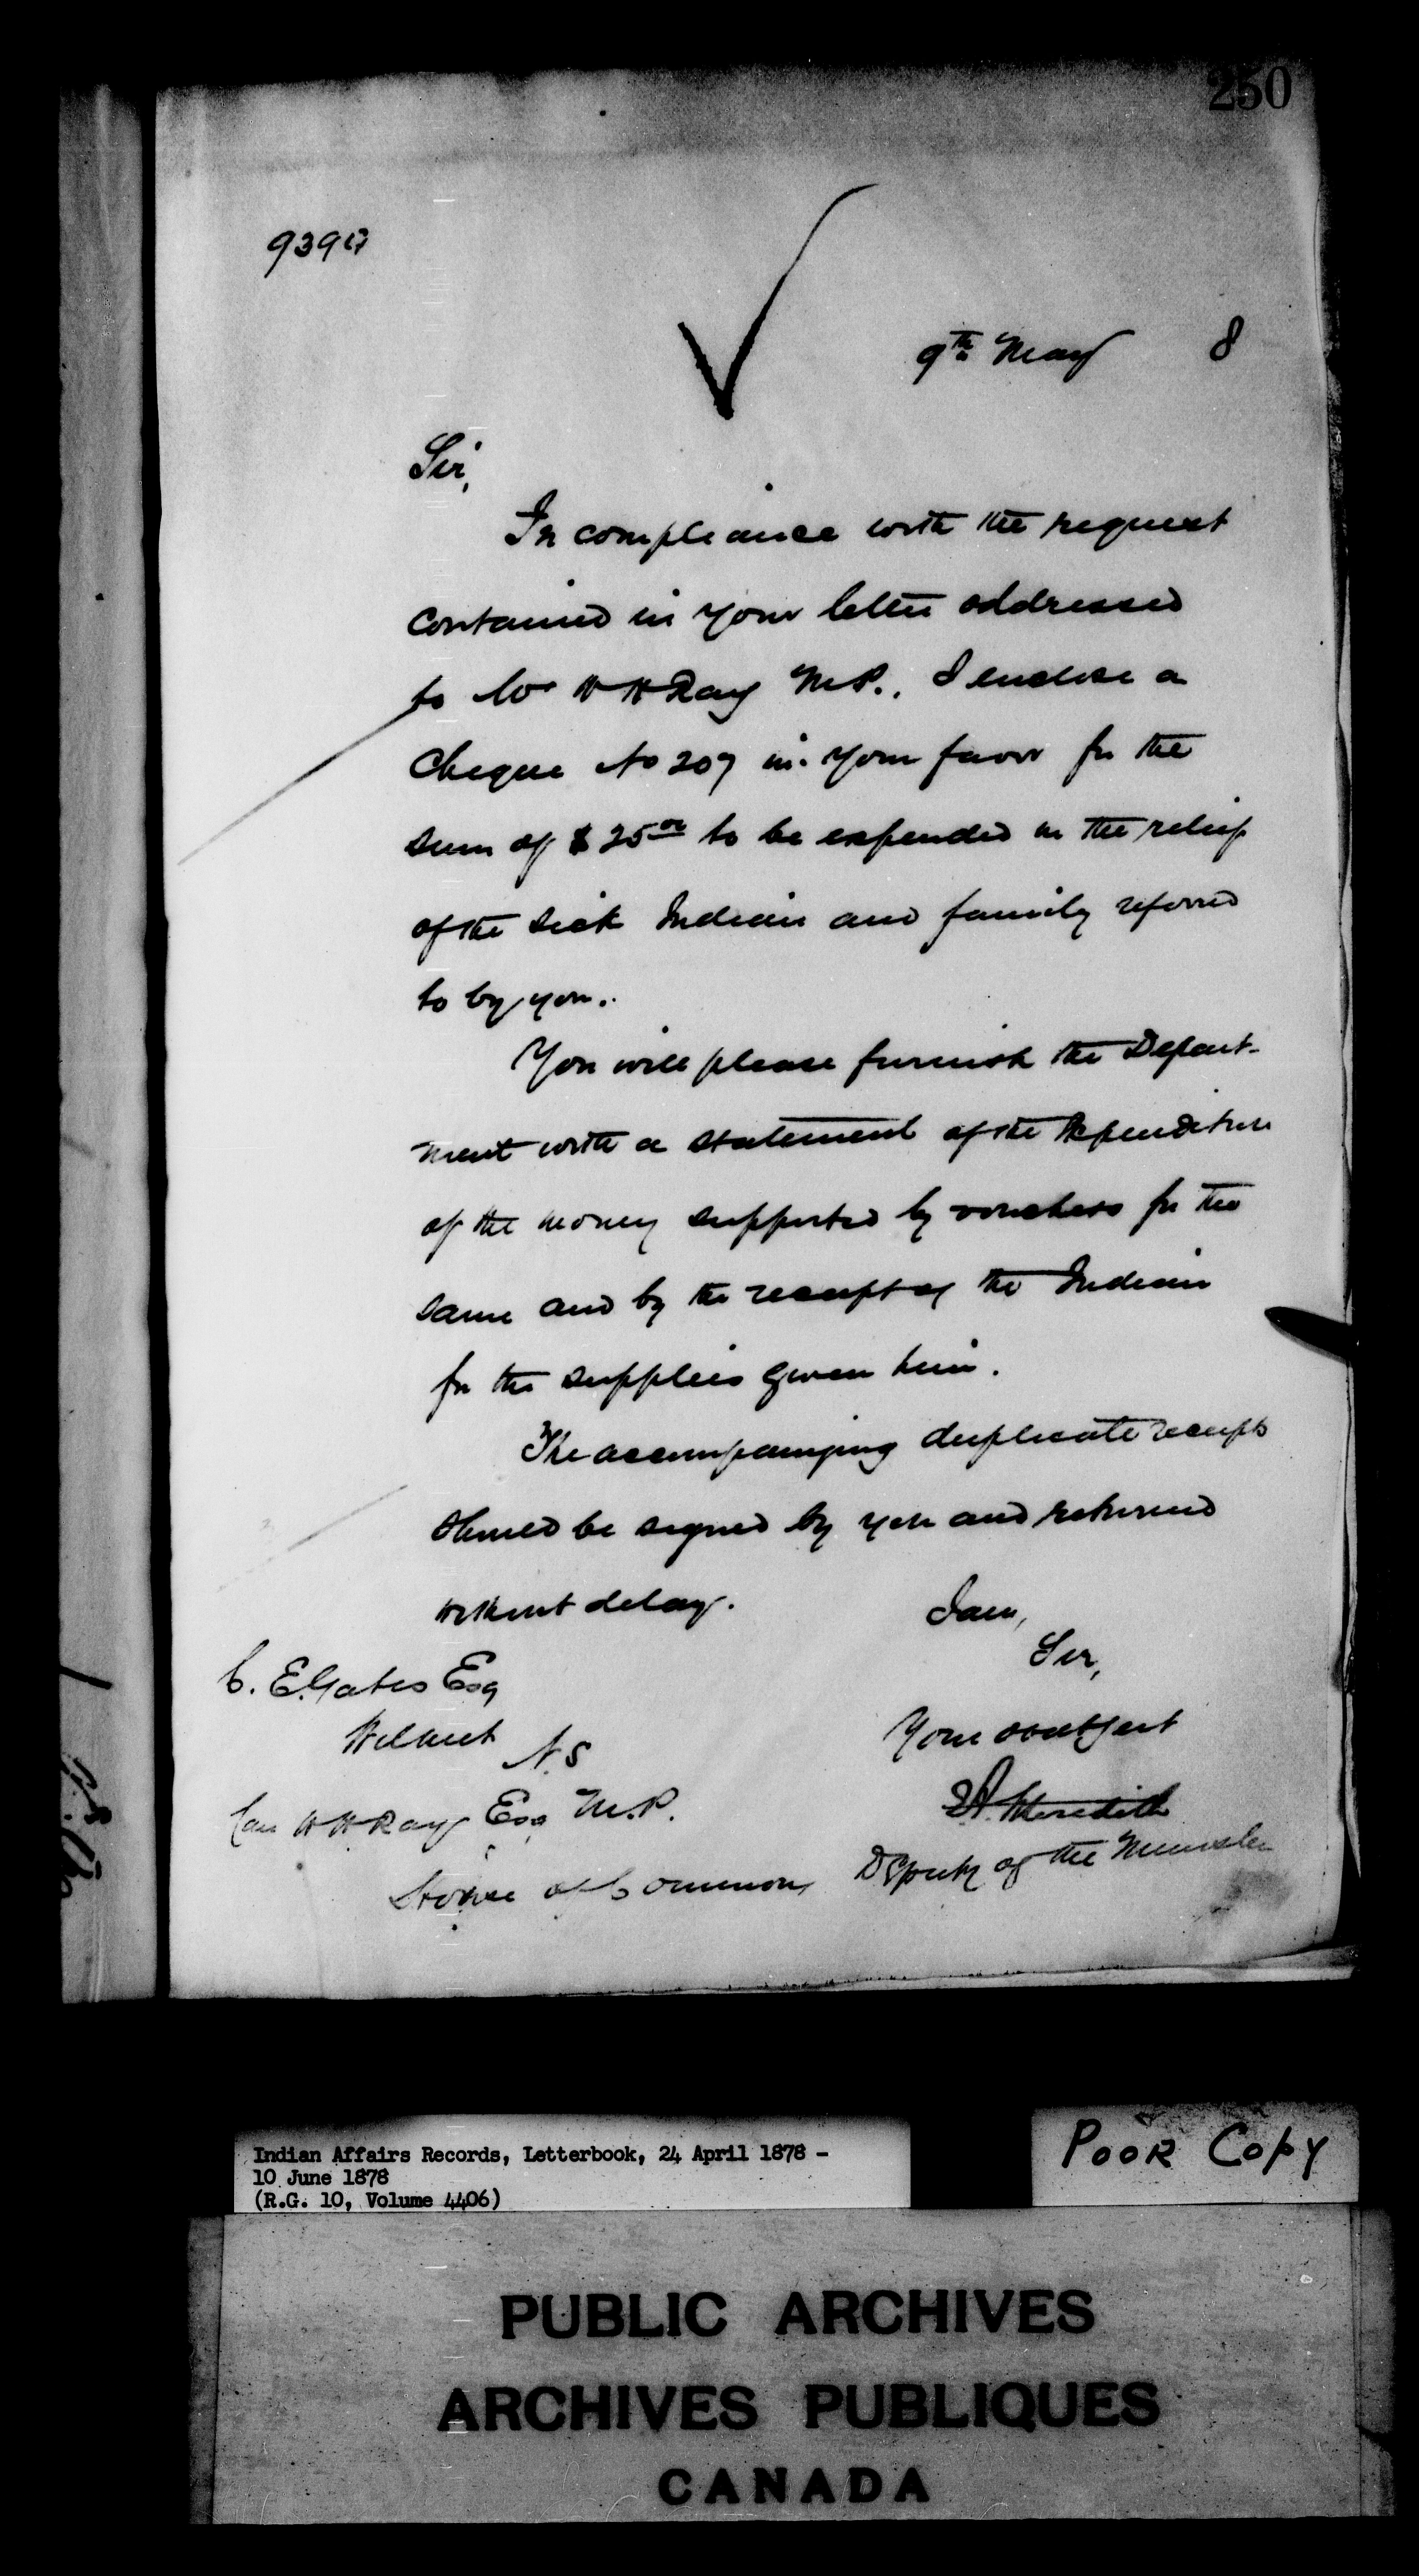 250
9th May 8
Sir,
In compliance with the request
contained in your letter addressed
to W H Ray M.P., I enclose a
Cheque No 207 in your favor for the
sum of $ 25 00 to be expended in the relief
of the sick Indian and family referred
to by you.
You will please furnish the Depart-
ment with a statement of the Expenditure
of the money supported by vouchers for the
same and by the receipt of the Indian
for the supplies given him.
The accompanying duplicate receipts
should be signed by you and returned
without delay.
I am,
Sir,
C. E. Gates Esq
Wilmot N.S
Your obt Sert
Care W H Ray Esq M.P.
House of Commons
E A. Meredith
Deputy of the Minister
Indian Affairs Records, Letterbook, 24 April 1878 -
10 June 1878
(R.G. 10, Volume 4406)
POOR COPY
PUBLIC ARCHIVES
ARCHIVES PUBLIQUES
CANADA